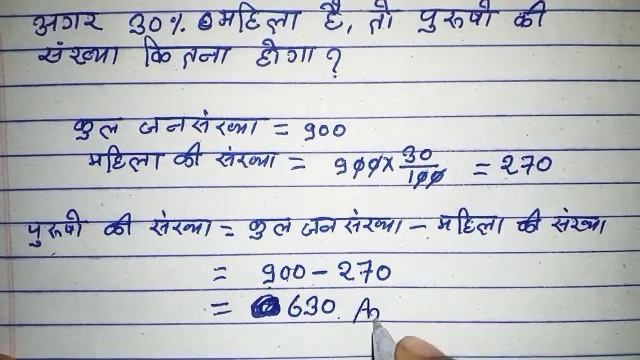 अगर 30% महिला है, तो पुरूषो की
संख्या कितना होगा?
कुल जनसंख्या = 900
महिला की संख्या = 900 × 30/100 = 270
पुरूषो की संख्या = कुल जनसंख्या - महिला की संख्या
= 900 - 270
= 630 An